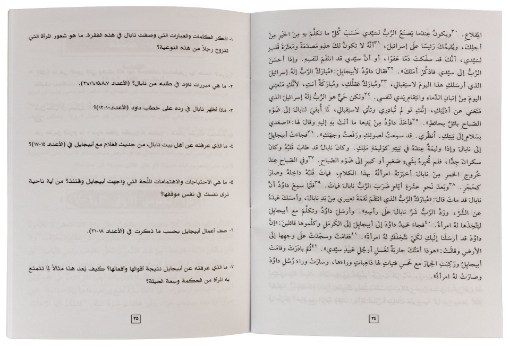 المِقْلاَعِ. وَيَكُونُ عِنْدَمَا يَصْنَعُ الرَّبُّ لِسَيِّدِي حَسَبَ كُلِّ مَا تَكَلَّمَ بِهِ مِنَ الْخَيْرِ مِنْ
أَجْلِكَ، وَيُقِيمُكَ رَئِيسًا عَلَى إِسْرَائِيلَ، أَنَّهُ لاَ تَكُونُ لَكَ هذِهِ مَصْدَمَةً وَمَعْثَرَةَ قَلْبٍ
لِسَيِّدِي، أَنَّكَ قَدْ سَفَكْتَ دَمًا عَفْوًا، أَوْ أَنَّ سَيِّدِي قَدِ انْتَقَمَ لِنَفْسِهِ. وَإِذَا أَحْسَنَ
الرَّبُّ إِلَى سَيِّدِي فَاذْكُرْ أَمَتَكَ. فَقَالَ دَاوُدُ لأَبِيجَايِلَ: مُبَارَكٌ الرَّبُّ إِلهُ إِسْرَائِيلَ
الَّذِي أَرْسَلَكِ هذَا الْيَوْمَ لاسْتِقْبَالِي، وَمُبَارَكٌ عَقْلُكِ، وَمُبَارَكَةٌ أَنْتِ، لأَنَّكِ مَنَعْتِنِي
الْيَوْمَ مِنْ إِتْيَانِ الدِّمَاءِ وَانْتِقَامِ يَدِي لِنَفْسِي. وَلكِنْ حَيٌّ هُوَ الرَّبُّ إِلهُ إِسْرَائِيلَ الَّذِي
مَنَعَنِي عَنْ أَذِيَّتِكِ، إِنَّكِ لَوْ لَمْ تُبَادِرِي وَتَأْتِي لاسْتِقْبَالِي، لَمَا أُبْقِيَ لِنَابَالَ إِلَى ضَوْءِ
الصَّبَاحِ بَائِلٌ بِحَائِطٍ. فَأَخَذَ دَاوُدُ مِنْ يَدِهَا مَا أَتَتْ بِهِ إِلَيْهِ وَقَالَ لَهَا: اصْعَدِي
بِسَلاَمٍ إِلَى بَيْتِكِ. اُنْظُرِي. قَدْ سَمِعْتُ لِصَوْتِكِ وَرَفَعْتُ وَجْهَكِ. فَجَاءَتْ أَبِيجَايِلُ
إِلَى نَابَالَ وَإِذَا وَلِيمَةٌ عِنْدَهُ فِي بَيْتِهِ كَوَلِيمَةِ مَلِكٍ. وَكَانَ نَابَالُ قَدْ طَابَ قَلْبُهُ وَكَانَ
سَكْرَانَ جِدًّا، فَلَمْ تُخْبِرْهُ بِشَيْءٍ صَغِيرٍ أَوْ كَبِيرٍ إِلَى ضَوْءِ الصَّبَاحِ. وَفِي الصَّبَاحِ عِنْدَ
خُرُوجِ الْخَمْرِ مِنْ نَابَالَ أَخْبَرَتْهُ امْرَأَتُهُ بِهذَا الْكَلاَمِ، فَمَاتَ قَلْبُهُ دَاخِلَهُ وَصَارَ
كَحَجَرٍ. وَبَعْدَ نَحْوِ عَشَرَةِ أَيَّامٍ ضَرَبَ الرَّبُّ نَابَالَ فَمَاتَ. فَلَمَّا سَمِعَ دَاوُدُ أَنَّ
نَابَالَ قَدْ مَاتَ قَالَ: مُبَارَكٌ الرَّبُّ الَّذِي انْتَقَمَ نَقْمَةَ تَعْيِيرِي مِنْ يَدِ نَابَالَ، وَأَمْسَكَ عَبْدَهُ
عَنِ الشَّرِّ، وَرَدَّ الرَّبُّ شَرَّ نَابَالَ عَلَى رَأْسِهِ. وَأَرْسَلَ دَاوُدُ وَتَكَلَّمَ مَعَ أَبِيجَايِلَ
لِيَتَّخِذَهَا لَهُ امْرَأَةً. فَجَاءَ عَبِيدُ دَاوُدَ إِلَى أَبِيجَايِلَ إِلَى الْكَرْمَلِ وَكَلَّمُوهَا قَائِلِينَ: إِنَّ
دَاوُدَ قَدْ أَرْسَلَنَا إِلَيْكِ لِكَيْ يَتَّخِذَكِ لَهُ امْرَأَةً. فَقَامَتْ وَسَجَدَتْ عَلَى وَجْهِهَا إِلَى
الأَرْضِ وَقَالَتْ: هُوَذَا أَمَتُكَ جَارِيَةٌ لِغَسْلِ أَرْجُلِ عَبِيدِ سَيِّدِي. ثُمَّ بَادَرَتْ وَقَامَتْ
أَبِيجَايِلُ وَرَكِبَتِ الْحِمَارَ مَعَ خَمْسِ فَتَيَاتٍ لَهَا ذَاهِبَاتٍ وَرَاءَهَا، وَسَارَتْ وَرَاءَ رُسُلِ دَاوُدَ
وَصَارَتْ لَهُ امْرَأَةً.
١- اذكر الكلمات والعبارات التي وصفت نابال في هذه الفقرة. ما هو شعور المرأة التي
تتزوج رجلاً من هذه النوعية؟
٢- ما هي مبررات داود في طلبه من نابال؟
٣- ماذا أظهر نابال في رده على خطاب داود
٤- ما الذي عرفته عن أهل بيت نابال، من حديث الغلام مع أبيجايل
٥- ما هي الاحتياجات والاهتمامات الملحة التي واجهت أبيجايل وقتئذ؟ من أية ناحية
ترى نفسك في نفس موقفها؟
٦- صف أعمال أبيجايل بحسب ما ذكرت في
٧- ما الذي عرفته عن أبيجايل نتيجة أقوالها وأفعالها؟ كيف يعد هذا مثالاً لما تتمتع
به المرأة من الحكمة وسعة الحيلة؟